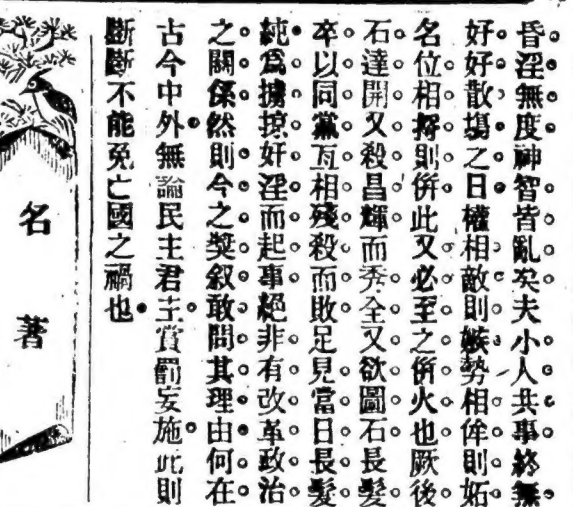 昏淫無度神智皆亂矣夫小人共事終無
好好散塲之日權相敵則嫉勢相侔則妬
名位相捋則倂此又必至之倂火也厥後
石達開又殺昌輝而秀全又欲圖石長髮
卒以同黨互相殘殺而敗足見當日長髮
純爲擄掠奸淫而起事絕非有改革政治
之關係然則今之奬叙敢問其理由何在
古今中外無論民主君主賞罰妄施此則
斷斷不能免亡國之禍也
名著